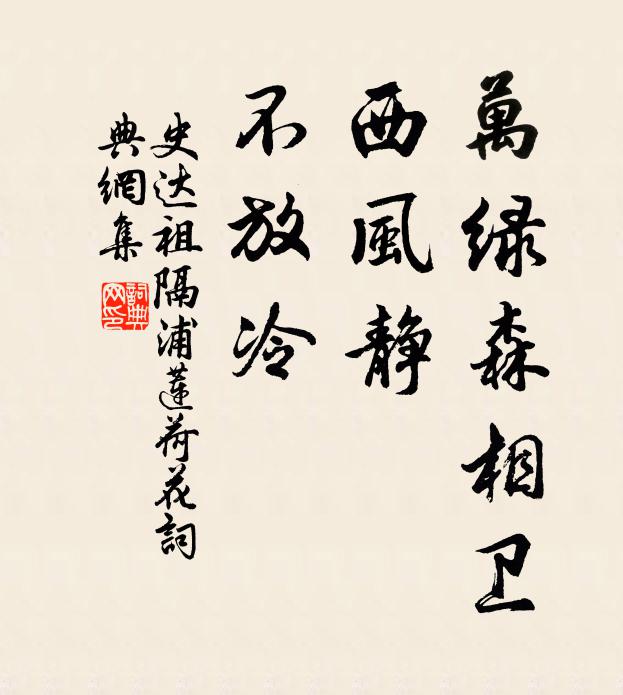 萬绿森相卫
西風静
不放冷
史达祖隔浦蓮荷花詞
典網集
詞典网印